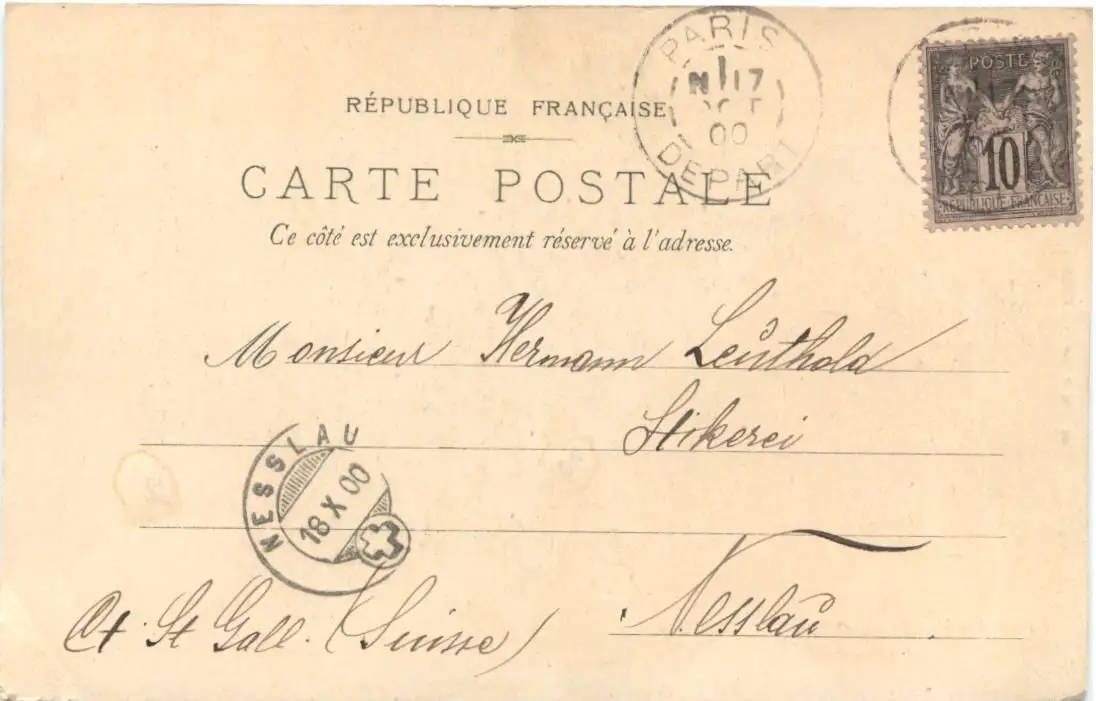 PARIS
17
OCT
00
DEPART
POSTE
10
RÉPUBLIQUE FRANÇAISE
RÉPUBLIQUE FRANÇAISE
CARTE POSTALE
Ce côté est exclusivement réservé à l'adresse.
Monsieur Hermann Leuthold
Stikerei
NESSLAU
18 X 00
Nesslau
Ct. St Gall. (Suisse)